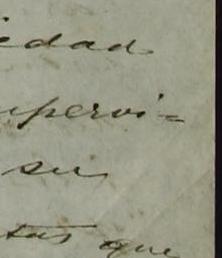 edad
upervi-
su
tas que